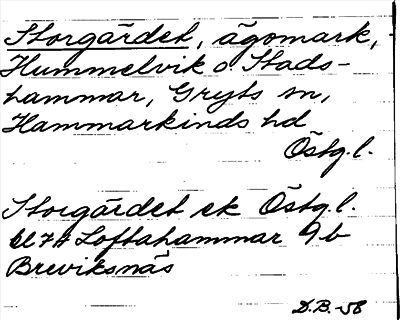 Storgärdet, ägomark,
Hummelvik o. Stads-
hammar, Gryts sn,
Hammarkinds hd
Östg.l.
Storgärdet ek Östg.l.
bl 7H Loftahammar 9b
Breviksnäs
D.B.-58